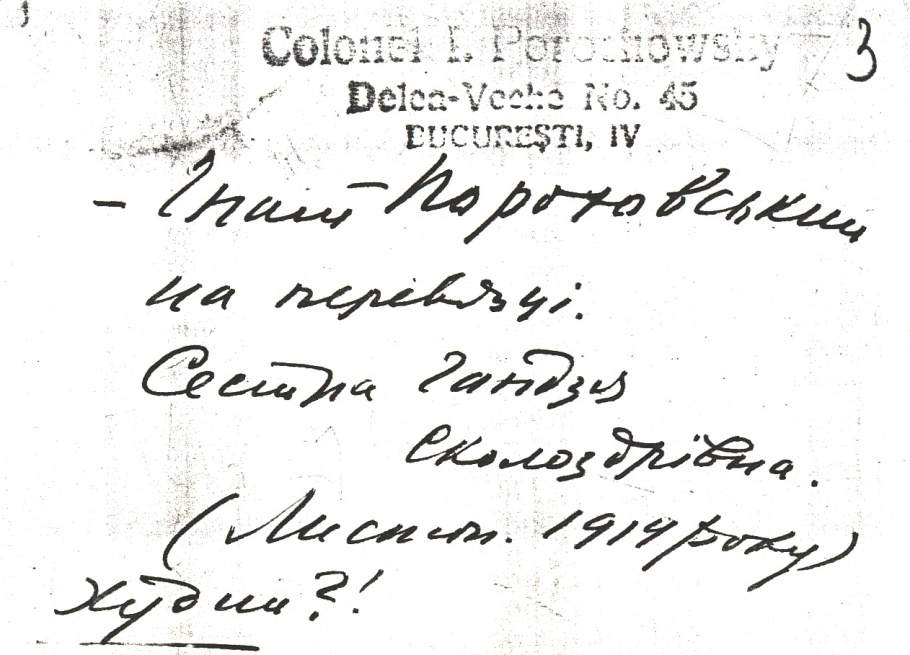 3
Colonel I. Porochowsky
Delea-Veche No. 45
BUCUREŞTI, IV
– Гнат Пороховський
на перевязці.
Сестра Гандзя
Сколоздрівна.
(Листоп. 1919 року)
Худий?!